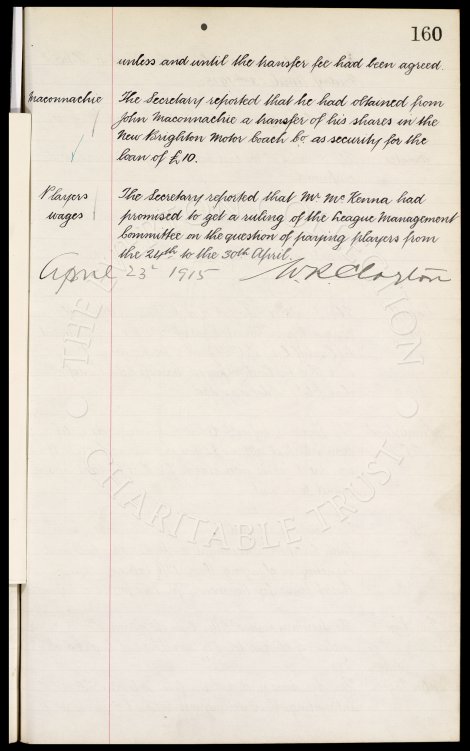 160
unless and until the transfer fee had been agreed.
Maconnachie
The Secretary reported that he had obtained from
John Maconnachie a transfer of his shares in the
New Brighton Motor Coach Co. as security for the
loan of £10.
Players
wages
The Secretary reported that Mr McKenna had
promised to get a ruling of the League Management
Committee on the question of paying players from
the 24th to the 30th April.
April 23d 1915 W.R. Clayton
THE
CHARITABLE TRUST